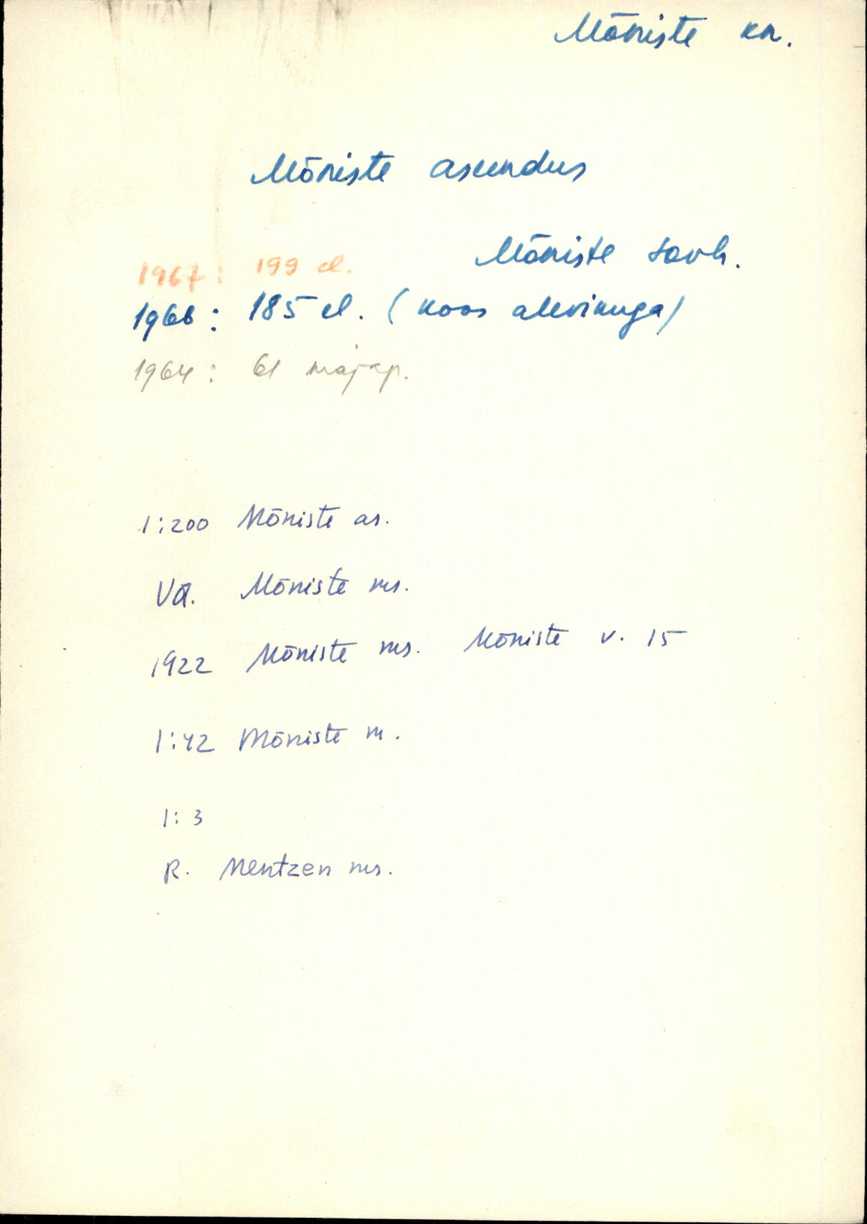 Mõniste kn.
Mõniste asundus
Mõniste sovh.
1967: 199 el.
1966: 185 el. (koos alevikuga)
1964: 61 majap.
1:200 Mõniste as.
Vd. Mõniste ms.
1922 Mõniste ms. Mõniste v. 15
1:42 Mõniste m.
1:3
R. Mentzen ms.